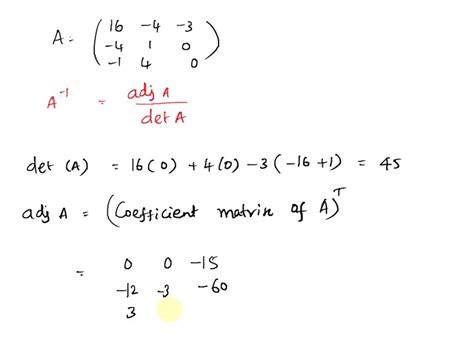 A = ( 16 -4 -3
-4 1 0
-1 4 0 )
A⁻¹ = adj A / det A
det (A) = 16(0) + 4(0) - 3(-16 + 1) = 45
adj A = (Coefficient matrix of A)ᵀ
= 0 0 -15
-12 -3 -60
3